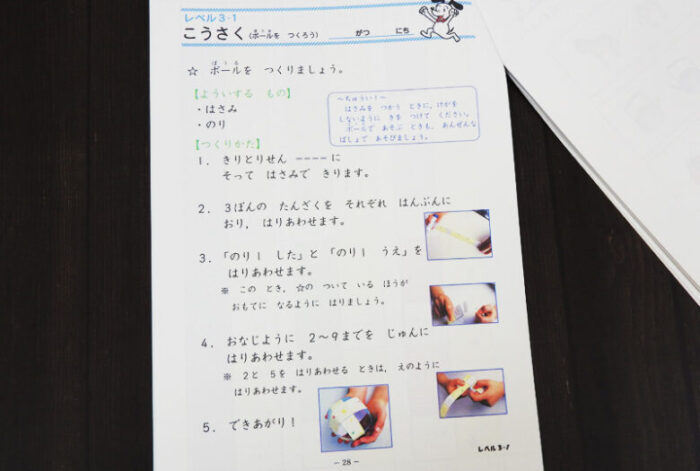 レベル3-1
こうさく(ボールを つくろう) がつ にち
☆ ボールを つくりましょう。
【よういする もの】
・はさみ
・のり
～ちゅうい！～
はさみを つかう ときに、けがを
しないように きを つけて ください。
ボールで あそぶ ときも、あんぜんな
ばしょで あそびましょう。
【つくりかた】
1. きりとりせん ---- に
そって はさみで きります。
2. 3ぼんの たんざくを それぞれ はんぶんに
おり, はりあわせます。
3.「のり1 した」と「のり1 うえ」を
はりあわせます。
※ この とき, ☆の ついて いる ほうが
おもてに なるように はりましょう。
4. おなじように 2～9までを じゅんに
はりあわせます。
※ 2と 5を はりあわせる ときは, えのように
はりあわせます。
5. できあがり！
レベル3-1
-28-